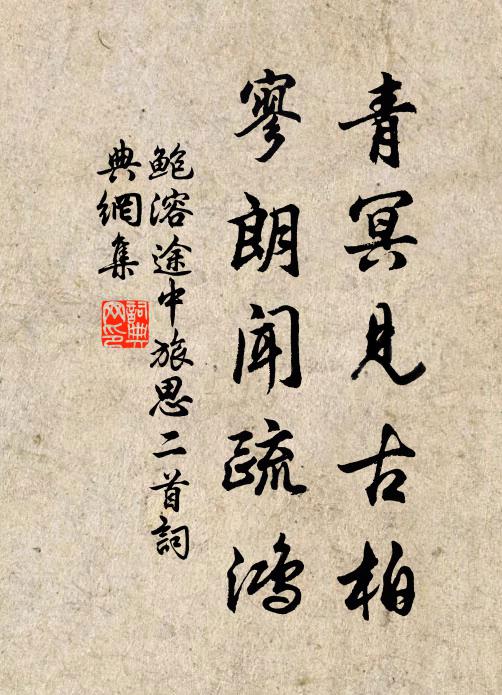 青冥見古柏
寥朗聞疏鴻
鮑溶途中旅思二首詞
典網集
詞典網印